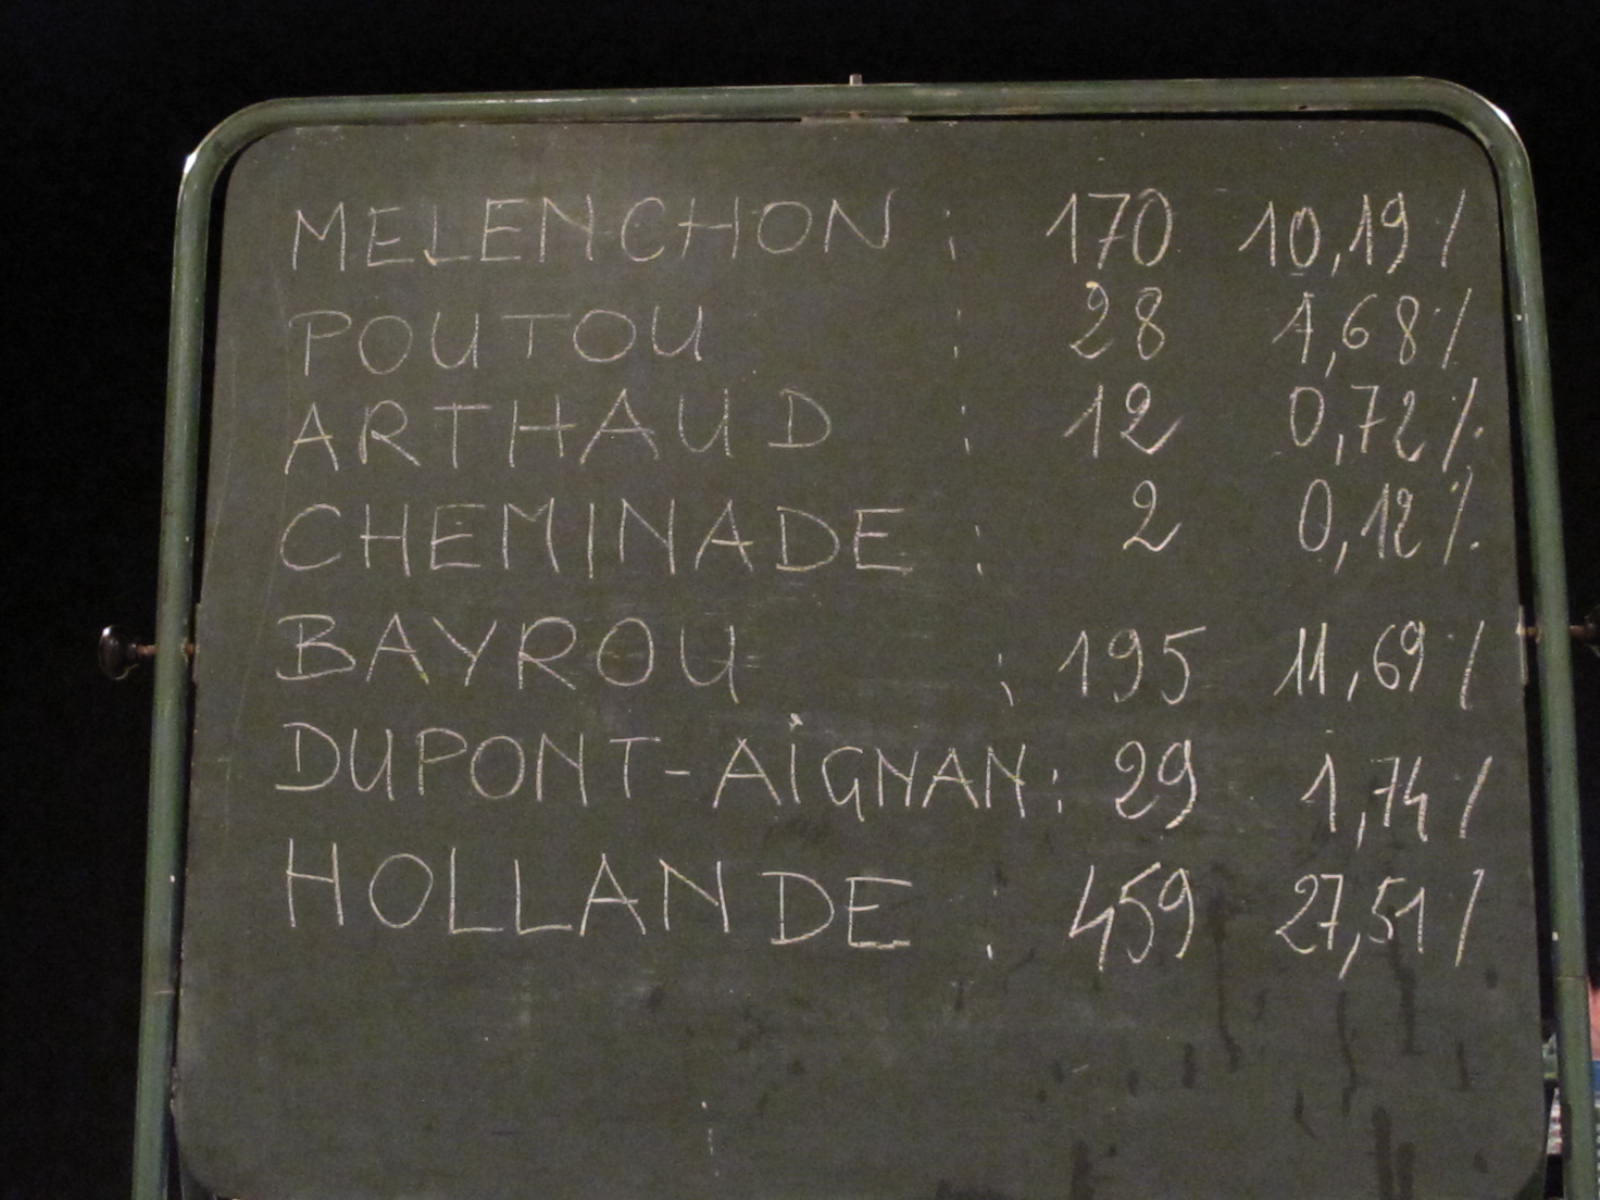 MELENCHON : 170 10,19 %
POUTOU : 28 1,68 %
ARTHAUD : 12 0,72 %
CHEMINADE : 2 0,12 %
BAYROU : 195 11,69 %
DUPONT-AiGNAN : 29 1,74 %
HOLLANDE : 459 27,51 %